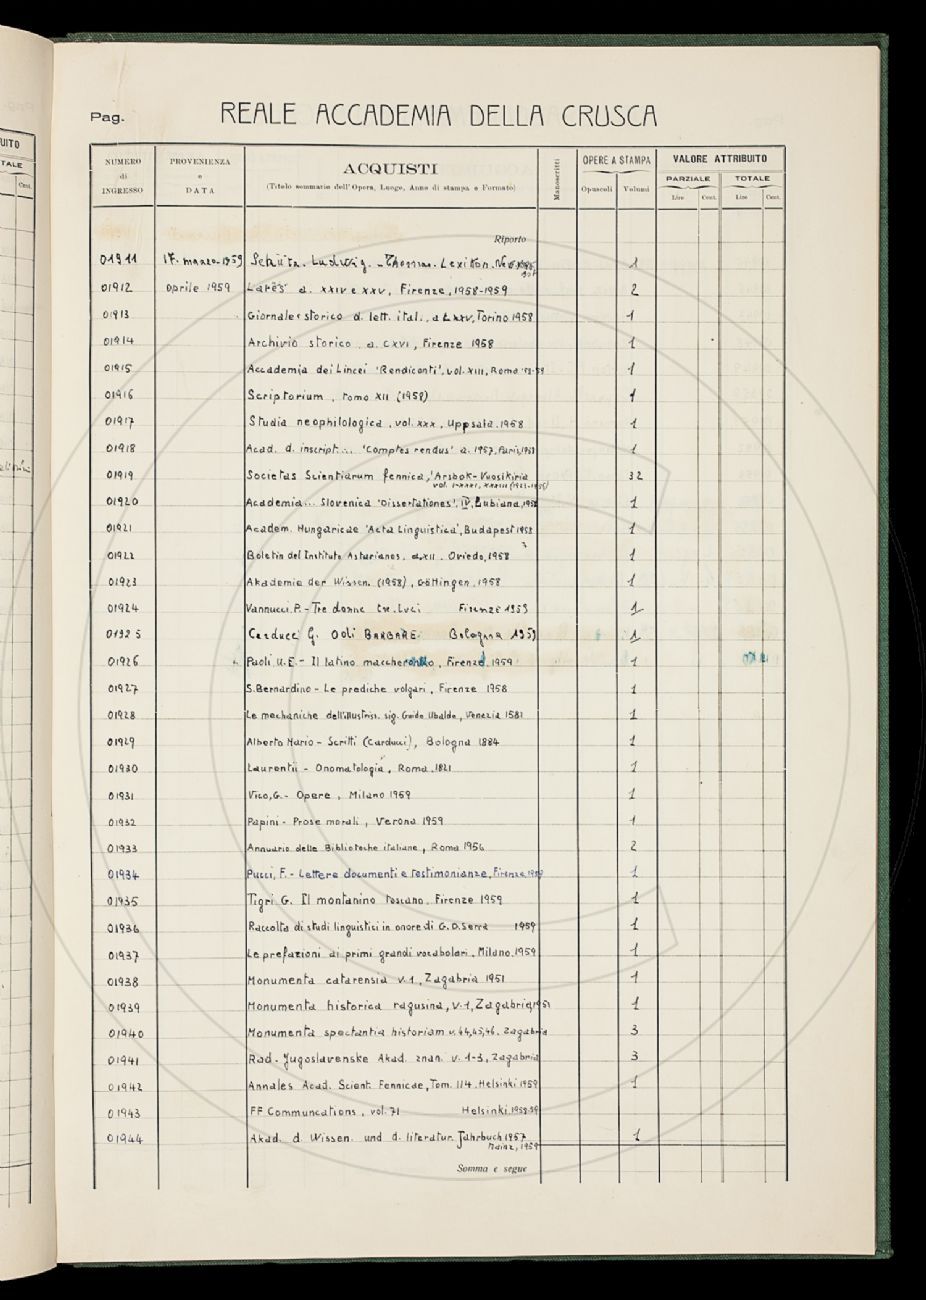 UITO
TALE
Cent.
Pag. REALE ACCADEMIA DELLA CRUSCA
NUMERO di INGRESSO
PROVENIENZA e DATA
ACQUISTI
(Titolo sommario dell'Opera, Luogo, Anno di stampa e Formato)
Manoscritti
OPERE A STAMPA
Opuscoli Volumi
VALORE ATTRIBUITO
PARZIALE TOTALE
Lire Cent. Lire Cent.
Riporto
01911 17. marzo-1959 Schütz. Ludwig. - Thomas. Lexikon. 1
01912 aprile 1959 Lares a. XXIV e XXV, Firenze, 1958-1959 2
01913 Giornale storico d. lett. ital., a LXXV, Torino 1958 1
01914 Archivio storico a. CXVI, Firenze 1958 1
01915 Accademia dei Lincei 'Rendiconti', vol. XIII, Roma '58-59 1
01916 Scriptorium, tomo XII (1958) 1
01917 Studia neophilologica, vol. XXX, Uppsala, 1958 1
01918 Acad. d. inscript... 'Comptes rendus' a. 1957, Paris, 1958 1
01919 Societas Scientiarum fennica, 'Arsbok-Vuosikiria 32
vol. I-XXXI, XXXIII
01920 Academia... Slovenica 'Dissertationes', IV, Lubiana, 1958 1
01921 Academ. Hungaricae 'Acta Linguistica', Budapest 1958 1
01922 Boletin del Instituto Asturianos. a. XII. Oviedo, 1958 1
01923 Akademie der Wissen. (1958), Göttingen, 1958 1
01924 Vannucci. P. - Tre donne tre. luci Firenze 1959 1
01925 Carducci G. Odi BARBARE. Bologna 1959 1
01926 Paoli, U. E. - Il latino maccheronico, Firenze 1959 1
01927 S. Bernardino - Le prediche volgari, Firenze 1958 1
01928 Le mechaniche dell'illustriss. sig. Guido Ubaldo, Venezia 1581 1
01929 Alberto Mario - Scritti (Carducci), Bologna 1884 1
01930 Laurentii - Onomatologia, Roma, 1821 1
01931 Vico, G. - Opere, Milano 1959 1
01932 Papini - Prose morali, Verona 1959 1
01933 Annuario delle Biblioteche italiane, Roma 1956 2
01934 Pucci, F. - Lettere documenti e testimonianze, Firenze, 1
01935 Tigri G. Il montanino toscano. Firenze 1959 1
01936 Raccolta di studi linguistici in onore di G. D. Serra 1959 1
01937 Le prefazioni ai primi grandi vocabolari, Milano, 1959 1
01938 Monumenta catarensia v. 1, Zagabria 1951 1
01939 Monumenta historica ragusina, v. 1, Zagabria, 1951 1
01940 Monumenta spectantia historiam v. 44, 45, 46. Zagabria 3
01941 Rad. Jugoslavenske Akad. znan. v. 1-3, Zagabria 3
01942 Annales Acad. Scient. Fennicae, Tom. 114. Helsinki 1959 1
01943 FF Communcations, vol. 71 Helsinki, 1958-59
01944 Akad. d. Wissen. und d. literatur. Jahrbuch 1957 1
Mainz, 1959
Somma e segue